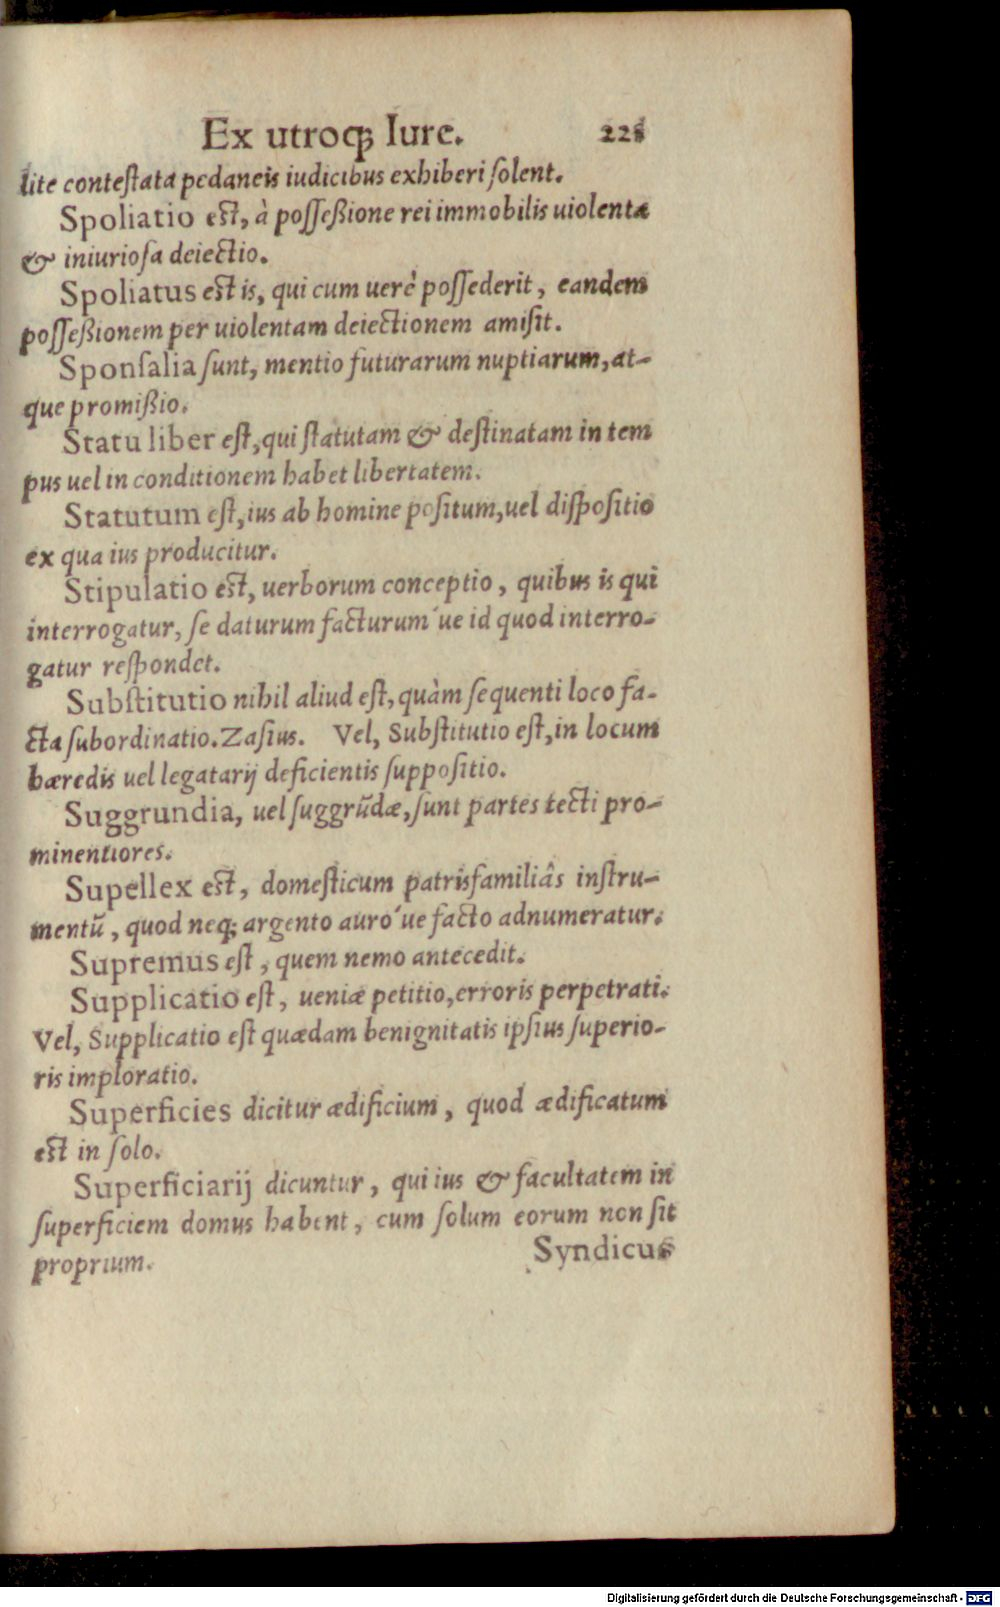 Ex utroqꝫ Iure. 228
lite conteſtata pedaneis iudicibus exhiberi ſolent.
Spoliatio eſt, à poſſeßione rei immobilis uiolenta
& iniurioſa deiectio.
Spoliatus eſt is, qui cum uerè poſſederit, eandem
poſſeßionem per uiolentam deiectionem amiſit.
Sponſalia ſunt, mentio futurarum nuptiarum, at-
que promißio.
Statu liber eſt, qui ſtatutam & deſtinatam in tem
pus uel in conditionem habet libertatem.
Statutum eſt, ius ab homine poſitum, uel diſpoſitio
ex qua ius producitur.
Stipulatio eſt, uerborum conceptio, quibus is qui
interrogatur, ſe daturum facturum´ue id quod interro-
gatur reſpondet.
Subſtitutio nihil aliud eſt, quàm ſequenti loco fa-
cta ſubordinatio. Zaſius. Vel, Subſtitutio eſt, in locum
hæredis uel legatarij deficientis ſuppoſitio.
Suggrundia, uel ſuggrũdæ, ſunt partes tecti pro-
minentiores.
Supellex eſt, domeſticum patrisfamiliâs inſtru-
mentũ, quod neqꝫ argento auro´ue facto adnumeratur.
Supremus eſt, quem nemo antecedit.
Supplicatio eſt, ueniæ petitio, erroris perpetrati.
Vel, Supplicatio eſt quædam benignitatis ipſius ſuperio-
ris imploratio.
Superficies dicitur ædificium, quod ædificatum
eſt in ſolo.
Superficiarij dicuntur, qui ius & facultatem in
ſuperficiem domus habent, cum ſolum eorum non ſit
proprium.
Syndicus
Digitalisierung gefördert durch die Deutsche Forschungsgemeinschaft - DFG